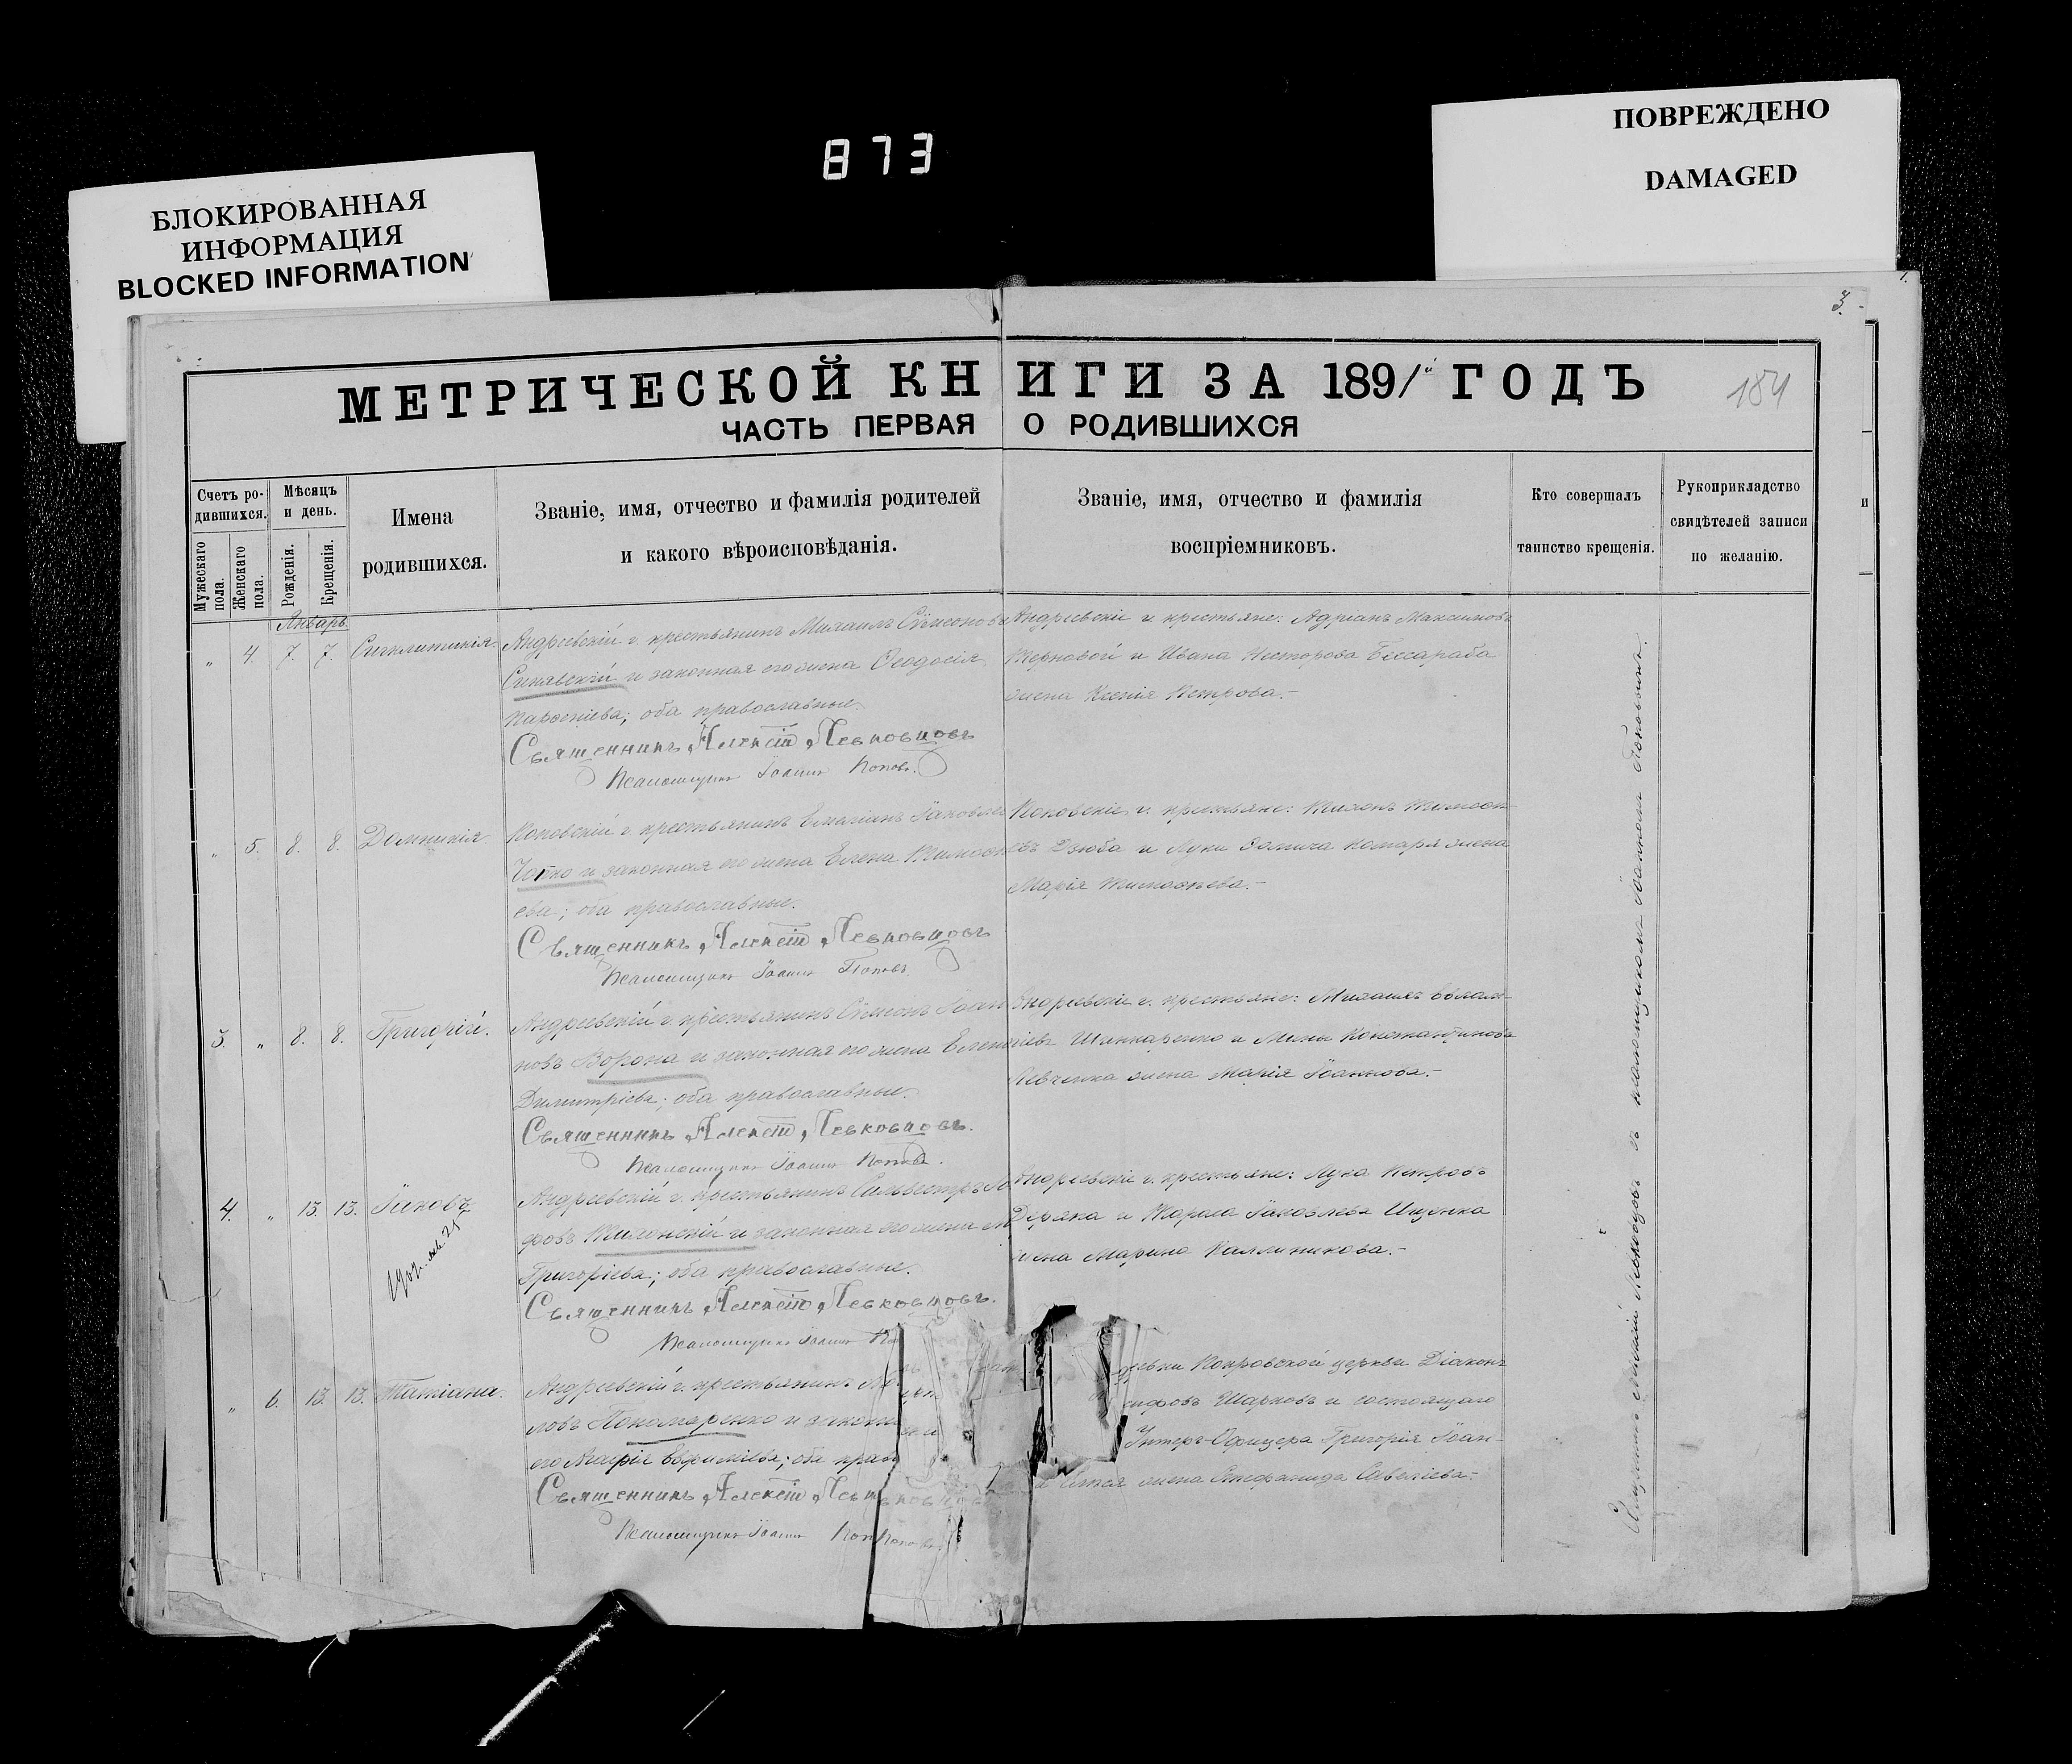 873
БЛОКИРОВАННАЯ
ИНФОРМАЦИЯ
BLOCKED INFORMATION
ПОВРЕЖДЕНО
DAMAGED
3.
МЕТРИЧЕСКОЙ КНИГИ ЗА 1891 ГОДЪ
184
ЧАСТЬ ПЕРВАЯ О РОДИВШИХСЯ
Счетъ ро-
дившихся.
Мужескаго пола.
Женскаго пола.
Мѣсяцъ
и день.
Рожденія.
Крещенія.
Имена
родившихся.
Званіе, имя, отчество и фамилія родителей
и какого вѣроисповѣданія.
Званіе, имя, отчество и фамилія
воспріемниковъ.
Кто совершалъ
таинство крещенія.
Рукоприкладство
свидѣтелей записи
по желанію.
и
Январь.
„ 4. 7. 7. Синклитикія
Андреевскій г. крестьянинъ Михаилъ Сѵмеоновъ
Синявскій и законная его жена Ѳеодосія
; оба православные.
Священникъ Алексій Левковцовъ
Псаломщикъ Іоаннъ Поповъ.
Андреевскіе г. крестьяне: Адріанъ Максимовъ
Терновой и Ивана Несторова Бессараба
жена Ксенія Петрова.-
„ 5. 8. 8. Домникія.
Поповскій г. крестьянинъ Емеліанъ Іаковлев
и законная его жена Елена Тимоѳе
ева; оба православные.
Священникъ Алексій Левковцовъ
Псаломщикъ Іоаннъ Поповъ.
Поповскіе г. крестьяне: Тихонъ Тимоѳе-
евъ Дзюба и Луки Ѳомича Комаря жена
Марія Тимоѳеева.-
3. „ 8. 8. Григорій.
Андреевскій г. крестьянинъ Сѵмеонъ Іоан
новъ Ворона и законная его жена Елена
Димитріева; оба православные.
Священникъ Алексій Левковцовъ.
Псаломщикъ Іоаннъ Поповъ.
Андреевскіе г. крестьяне: Михаилъ
Шинкаренко и Мины Константинова
Левченка жена Марія Іоаннова.-
4. „ 13. 13. Іаковъ
Андреевскій г. крестьянинъ Сильвестръ
и законная его жена
Григоріева; оба православные.
Священникъ Алексій Левковцовъ.
Псаломщикъ Іоаннъ По
Андреевскіе г. крестьяне: Лука Петровъ
Деряка и Іаковлева Ищенка
жена Марина Каллиникова.-
„ 6. 13. 13. Татіана.
Андреевскій г. крестьянинъ
ловъ Пономаренко и законна
его Марія Евфиміева; оба прав
Священникъ Алексій Левковцовъ
Псаломщикъ Іоаннъ Поповъ
Покровской церкви Діаконъ
Шарковъ и состоящаго
Унтеръ-Офицера Григорія Іоан-
жена Стефанида Савеліева.-
Священникъ Алексій Левковцовъ съ псаломщикомъ Іоанномъ Поповымъ.